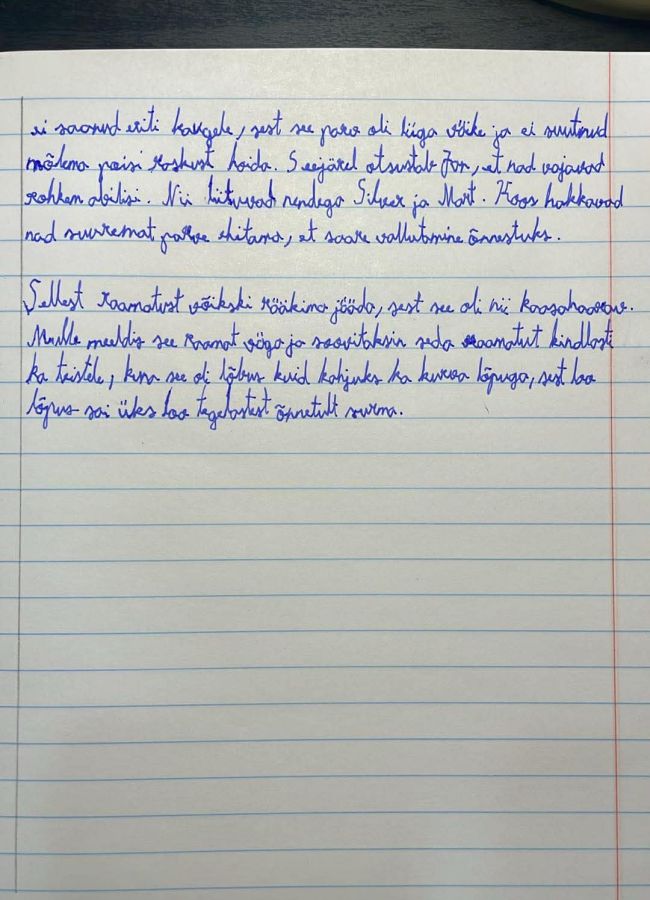 ei saanud eriti kaugele, sest see parv oli liiga väike ja ei suutnud
mõlema poisi raskust hoida. Seejärel otsustab Jon, et nad vajavad
rohkem abilisi. Nii liituvad nendega Silver ja Mart. Koos hakkavad
nad suuremat parve ehitama, et saare vallutamine õnnestuks.
Sellest raamatust võikski rääkima jääda, sest see oli nii kaasahaarav.
Mulle meeldis see raamat väga ja soovitaksin seda raamatut kindlasti
ka teistele, kuna see oli lõbus kuid kahjuks ka kurva lõpuga, sest loo
lõpus sai üks loo tegelastest õnnetult surma.